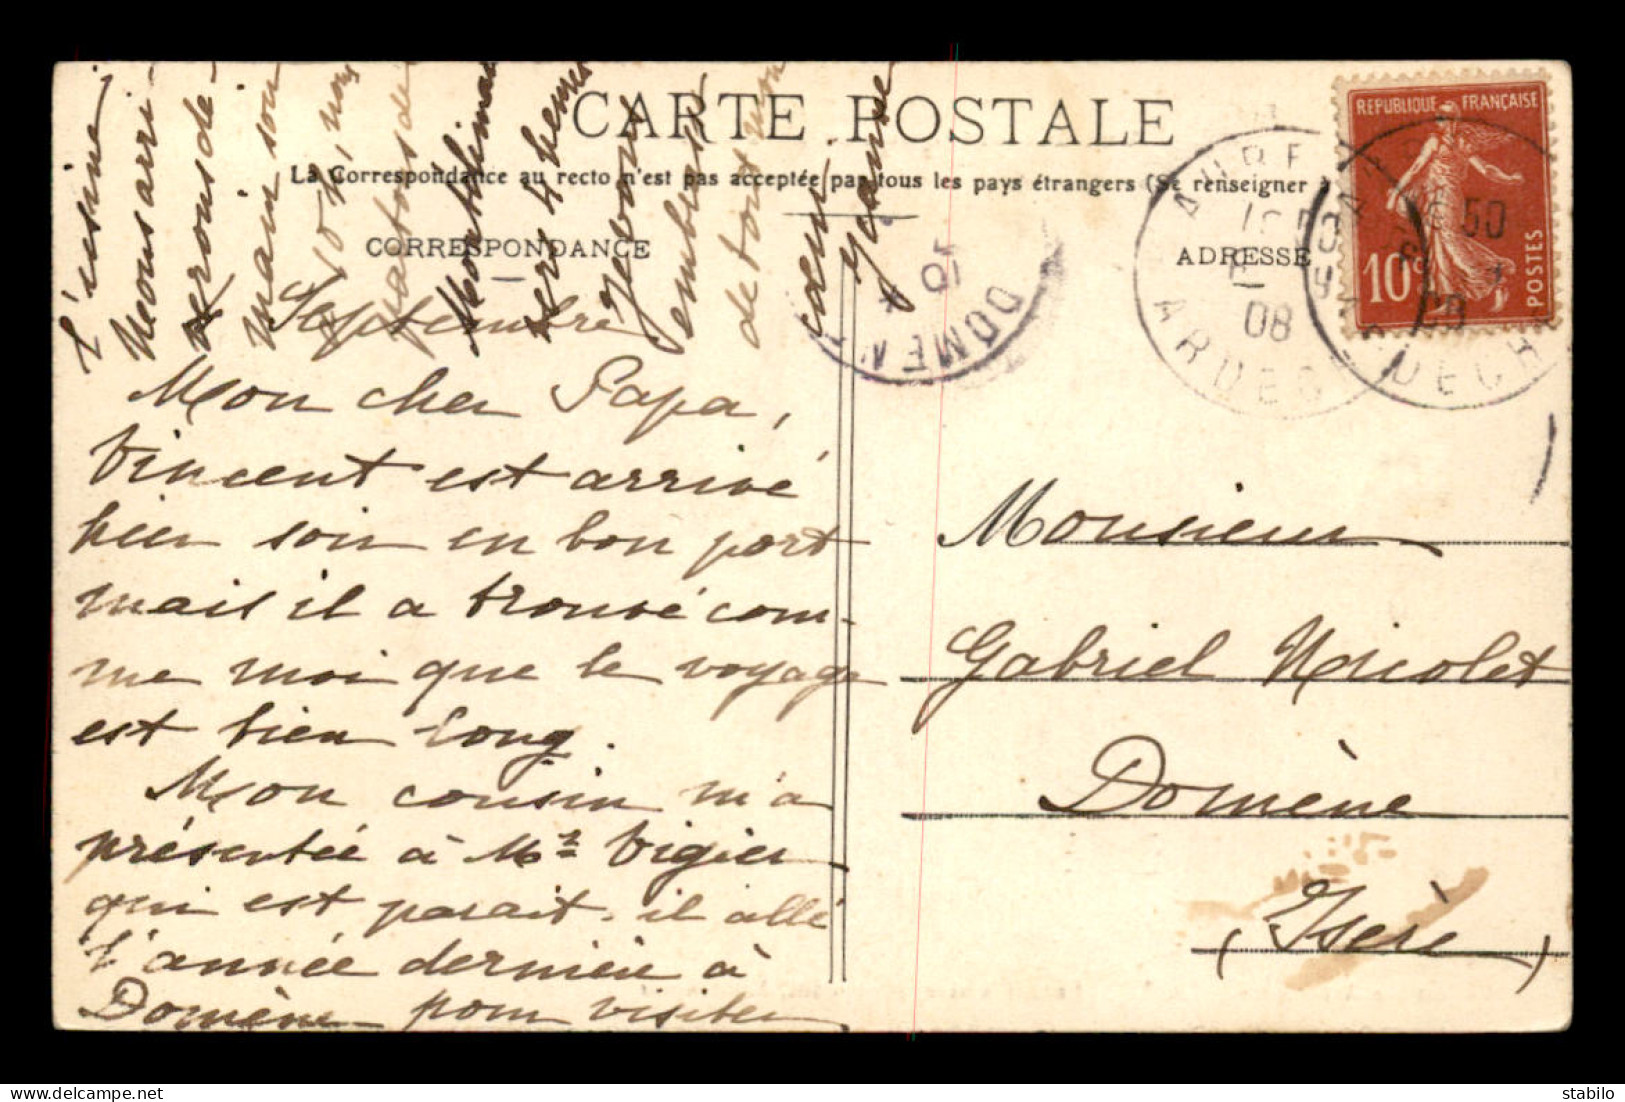 CARTE POSTALE
La Correspondance au recto n'est pas acceptée par tous les pays étrangers (Se renseigner à
CORRESPONDANCE
ADRESSE
Septembre
Mon cher Papa,
Vincent est arrivé
hier soir en bon port
mais il a trouvé com-
me moi que le voyage
est bien long.
Mon cousin m'a
présentée à Mr Vigier
qui est parait-il allé
l'année dernière à
Domène pour visiter
l'usine
Nous arri-
verons de-
main soir
non
pas de
Montélimar
vers 4 heures
Je vous
embrasse
de tout mon
cœur
Jeanne
Monsieur
Gabriel Nicolet
Domène
(Isère)
REPUBLIQUE FRANÇAISE
10c
POSTES
08
ARDECHE
ARDECHE
DOMENE
10